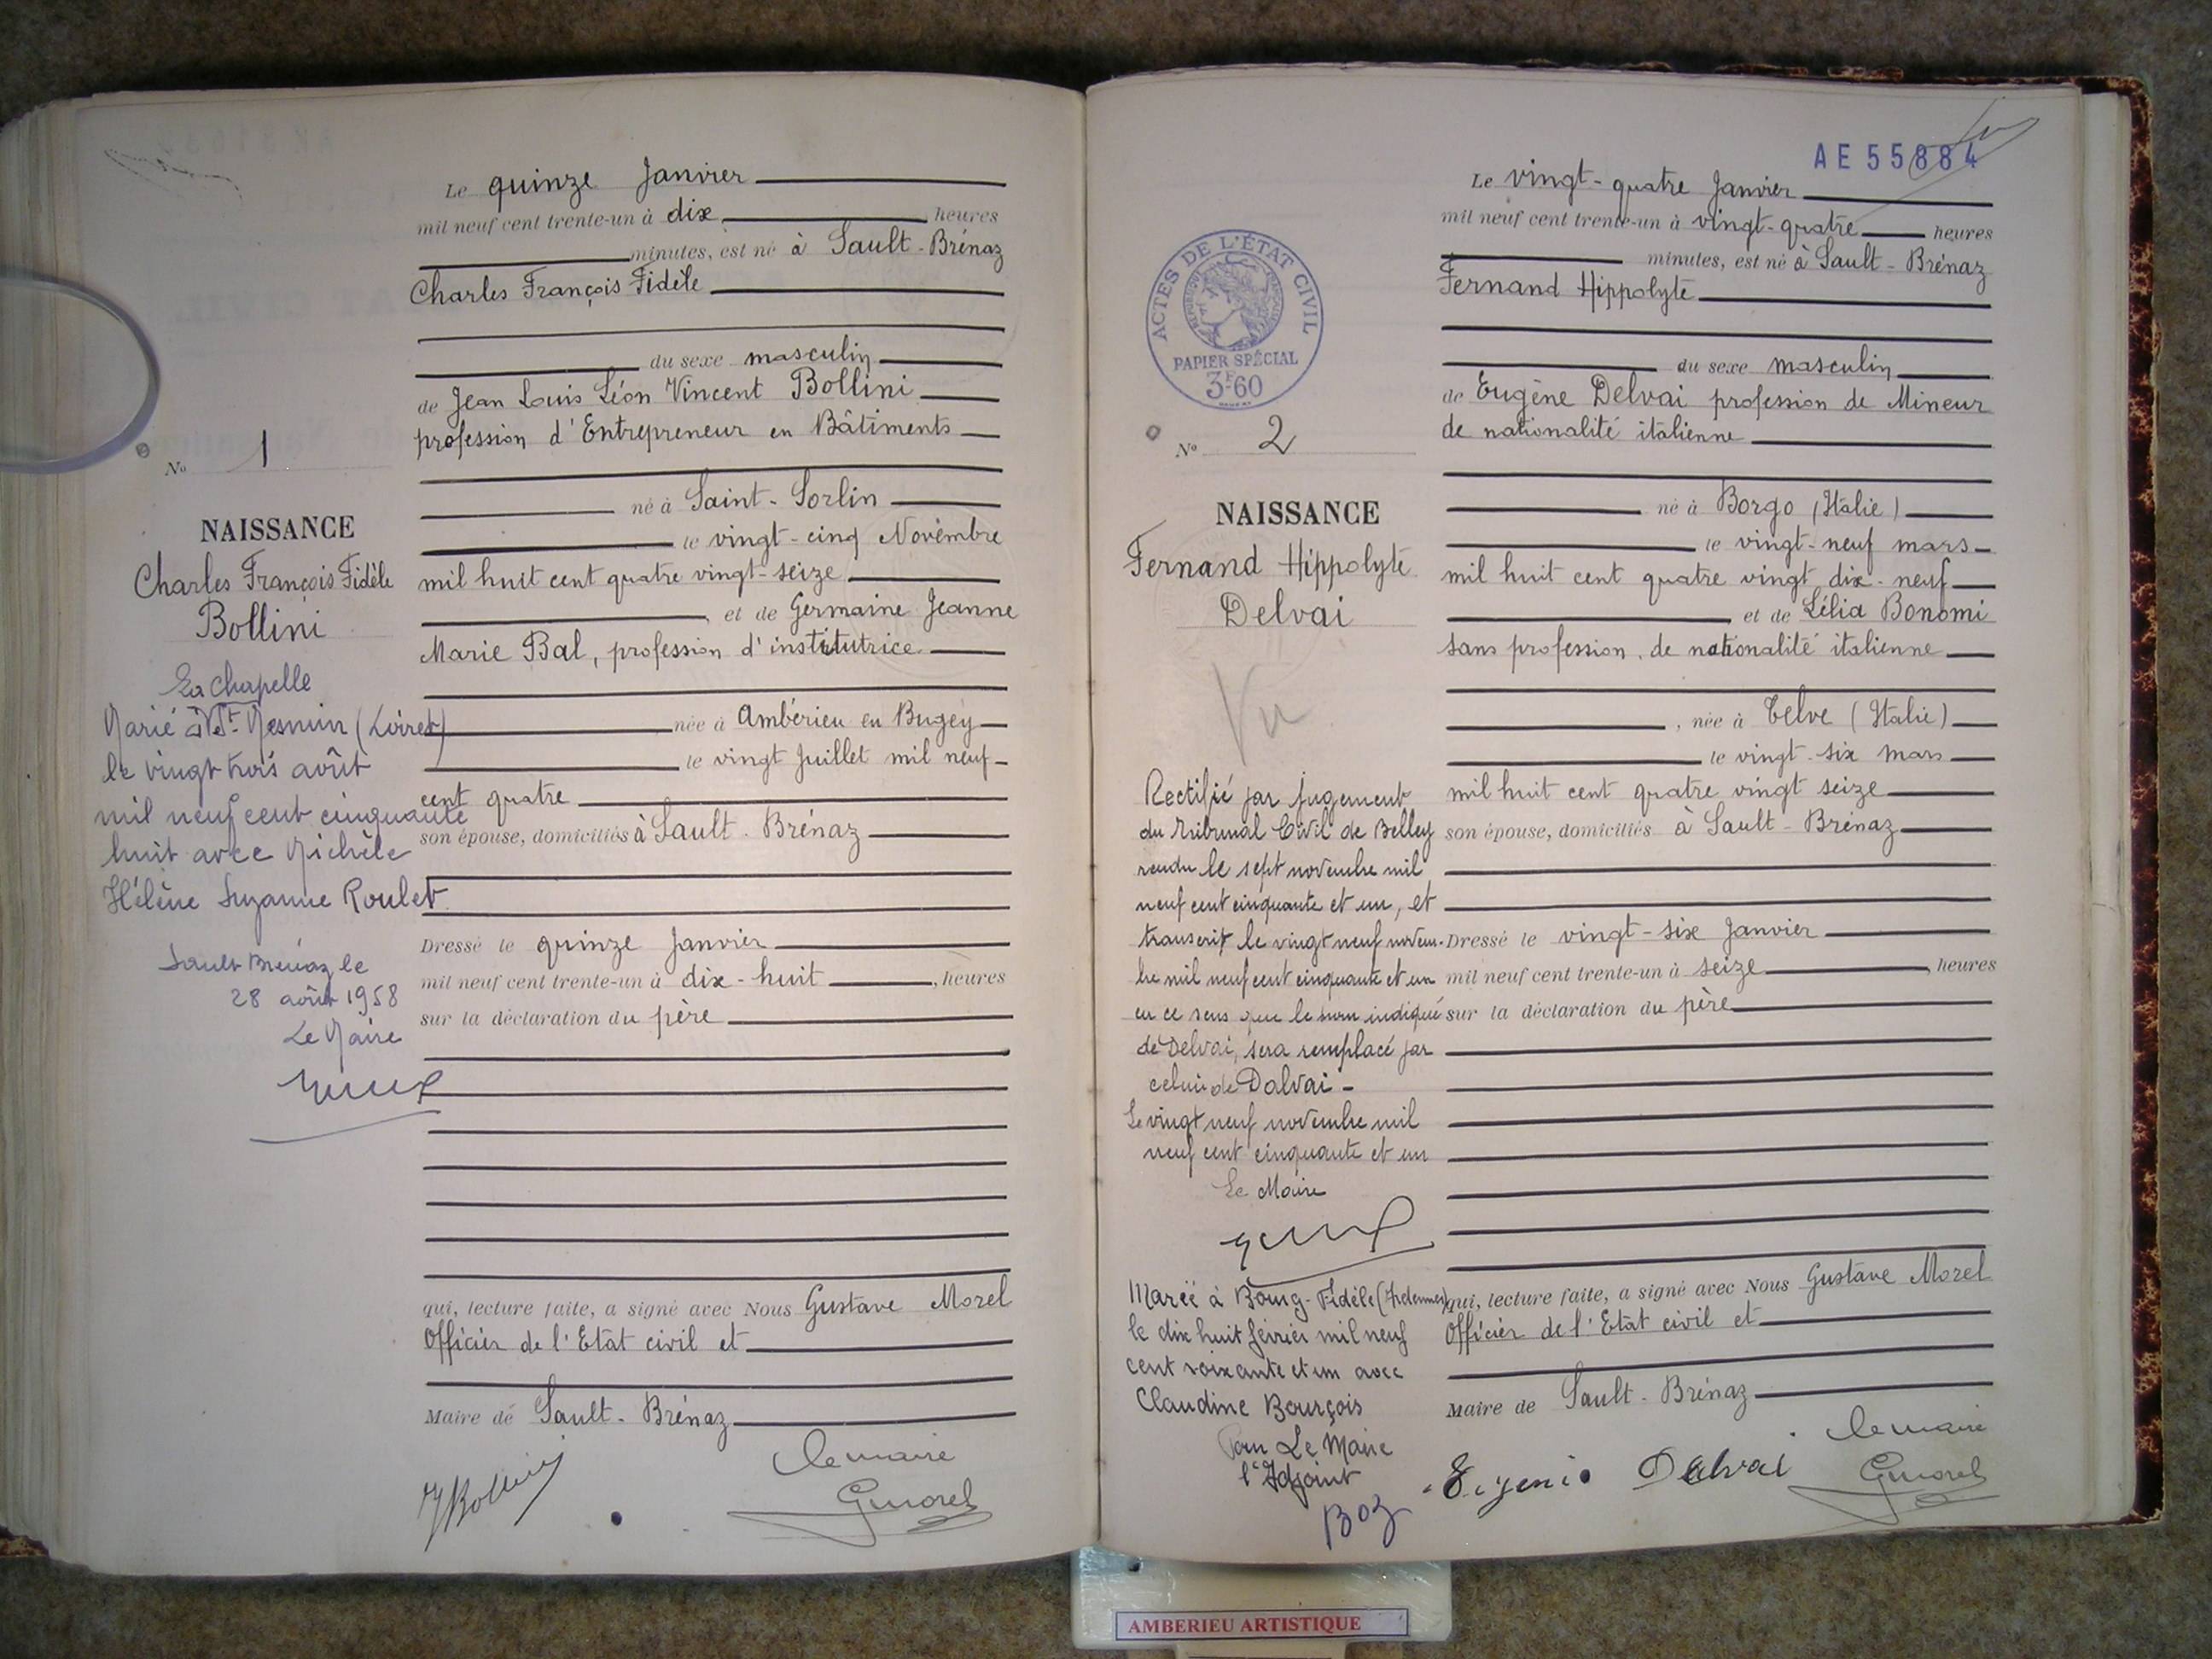 Le quinze Janvier
mil neuf cent trente-un à dix heures
minutes, est né à Sault-Brénaz
Charles François Fidèle
du sexe masculin
de Jean Louis Léon Vincent Bollini
profession d'Entrepreneur en Bâtiments
né à Saint-Sorlin
le vingt-cinq Novembre
mil huit cent quatre vingt-seize
et de Germaine Jeanne
Marie Bal, profession d'institutrice
née à Ambérieu en Bugey
le vingt Juillet mil neuf
cent quatre
son épouse, domiciliés à Sault-Brénaz
Dressé le quinze Janvier
mil neuf cent trente-un à dix-huit, heures
sur la déclaration du père
qui, lecture faite, a signé avec Nous Gustave Morel
Officier de l'Etat civil et
Maire de Sault-Brénaz
JBollini
Le maire
GMorel
No 1
NAISSANCE
Charles François Fidèle
Bollini
La Chapelle
Marié à St-Mesmin (Loiret)
le vingt trois août
mil neuf cent cinquante
huit avec Michèle
Hélène Suzanne Roulet
Sault Brénaz le
28 août 1958
Le Maire
AE 55884
Le vingt-quatre Janvier
mil neuf cent trente-un à vingt-quatre heures
minutes, est né à Sault-Brénaz
Fernand Hippolyte
du sexe masculin
de Eugène Delvai profession de Mineur
de nationalité italienne
né à Borgo (Italie)
le vingt-neuf mars
mil huit cent quatre vingt dix-neuf
et de Lélia Bonomi
sans profession, de nationalité italienne
, née à Telve (Italie)
le vingt-six mars
mil huit cent quatre vingt seize
son épouse, domiciliés à Sault-Brénaz
Dressé le vingt-six Janvier
mil neuf cent trente-un à seize, heures
sur la déclaration du père
qui, lecture faite, a signé avec Nous Gustave Morel
Officier de l'Etat civil et
Maire de Sault-Brénaz
Eugenio Dalvai
Le maire
GMorel
ACTES DE L'ÉTAT CIVIL
RÉPUBLIQUE FRANÇAISE
PAPIER SPÉCIAL
3F60
No 2
NAISSANCE
Fernand Hippolyte
Delvai
Vu
Rectifié par jugement
du Tribunal Civil de Belley
rendu le sept novembre mil
neuf cent cinquante et un, et
transcrit le vingt neuf novem-
bre mil neuf cent cinquante et un
en ce sens que le nom indiqué
de Delvai, sera remplacé par
celui de Dalvai -
Le vingt neuf novembre mil
neuf cent cinquante et un
Le Maire
Marié à Bourg-Fidèle (Ardennes)
le dix huit février mil neuf
cent soixante et un avec
Claudine Bourçois
Pour Le Maire
l'Adjoint
Boz
AMBERIEU ARTISTIQUE